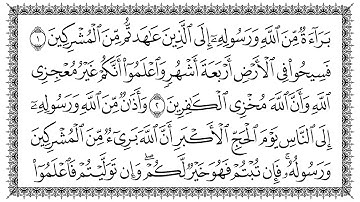 بَرَآءَةٌ مِّنَ ٱللَّهِ وَرَسُولِهِۦٓ إِلَى ٱلَّذِينَ عَٰهَدتُّم مِّنَ ٱلْمُشْرِكِينَ ١
فَسِيحُوا۟ فِى ٱلْأَرْضِ أَرْبَعَةَ أَشْهُرٍ وَٱعْلَمُوٓا۟ أَنَّكُمْ غَيْرُ مُعْجِزِى
ٱللَّهِ وَأَنَّ ٱللَّهَ مُخْزِى ٱلْكَٰفِرِينَ ٢ وَأَذَٰنٌ مِّنَ ٱللَّهِ وَرَسُولِهِۦٓ
إِلَى ٱلنَّاسِ يَوْمَ ٱلْحَجِّ ٱلْأَكْبَرِ أَنَّ ٱللَّهَ بَرِىٓءٌ مِّنَ ٱلْمُشْرِكِينَ
وَرَسُولُهُۥ ۚ فَإِن تُبْتُمْ فَهُوَ خَيْرٌ لَّكُمْ ۖ وَإِن تَوَلَّيْتُمْ فَٱعْلَمُوٓا۟